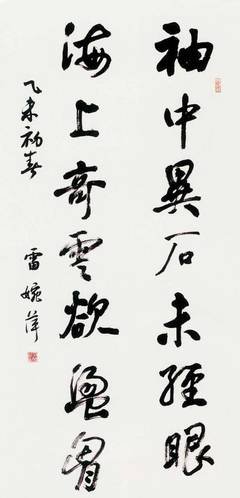 袖中異石未經眼
海上奇雲欲盪胷
乙未初春 雷婉萍